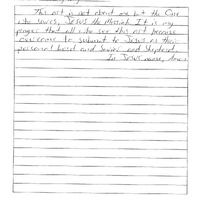 This art is not about me but the One
who saves, JESUS the Messiah. It is my
prayer that all who see this art because
overcome to submit to JESUS as their
personal Lord and Savior and Shepherd.
In JESUS name, Amen